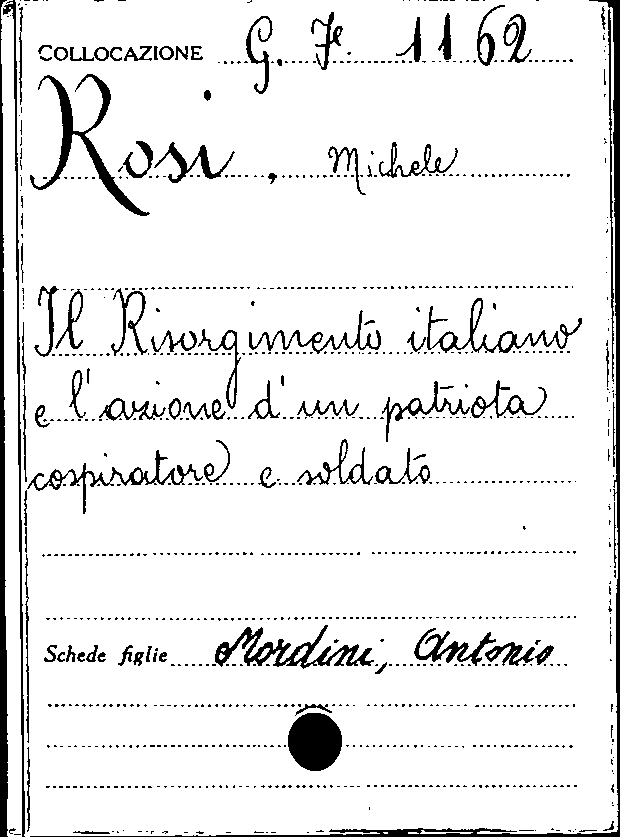 COLLOCAZIONE G. Fe. 1162
Rosi, Michele
Il Risorgimento italiano
e l'azione d'un patriota
cospiratore e soldato
Schede figlie Mordini, Antonio